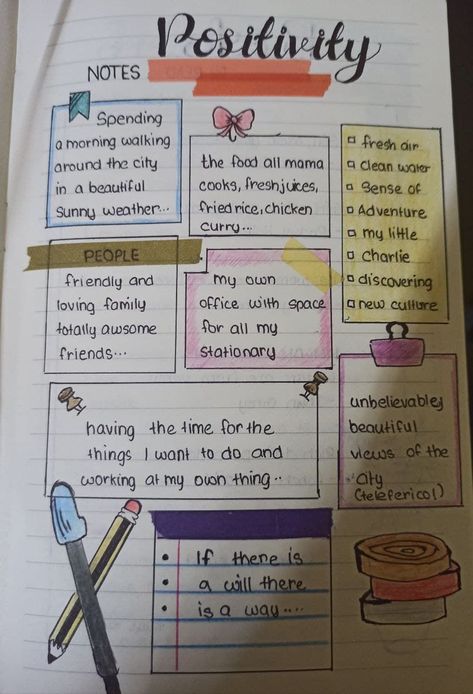 Positivity
NOTES
Spending
a morning walking
around the city
in a beautiful
sunny weather...
the food all mama
cooks, fresh juices,
fried rice, chicken
curry...
fresh air
clean water
Sense of
Adventure
my little
Charlie
discovering
new culture
PEOPLE
friendly and
loving family
totally awsome
friends...
my own
office with space
for all my
stationary
having the time for the
things I want to do and
working at my own thing..
unbelievabley
beautiful
views of the
city
(teleferico!)
• If there is
• a will there
• is a way....